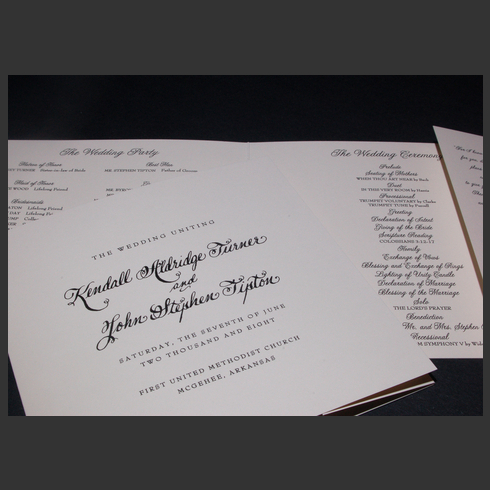 The Wedding Party
Matron of Honor
Best Man
Sister-in-law of Bride
MR. STEPHEN TIPTON Father of Groom
Maid of Honor
Lifelong Friend
Bridesmaids
Lifelong Friend
THE WEDDING UNITING
Kendall Aldridge Turner
and
John Stephen Tipton
SATURDAY, THE SEVENTH OF JUNE
TWO THOUSAND AND EIGHT
FIRST UNITED METHODIST CHURCH
MCGEHEE, ARKANSAS
The Wedding Ceremony
Prelude
Seating of Mothers
WHEN THOU ART NEAR by Bach
Duet
IN THIS VERY ROOM by Harris
Processional
TRUMPET VOLUNTARY by Clarke
TRUMPET TUNE by Purcell
Greeting
Declaration of Intent
Giving of the Bride
Scripture Reading
COLOSSIANS 3:12-17
Homily
Exchange of Vows
Blessing and Exchange of Rings
Lighting of Unity Candle
Declaration of Marriage
Blessing of the Marriage
Solo
THE LORD'S PRAYER
Benediction
Mr. and Mrs. Stephen
Recessional
M SYMPHONY V by